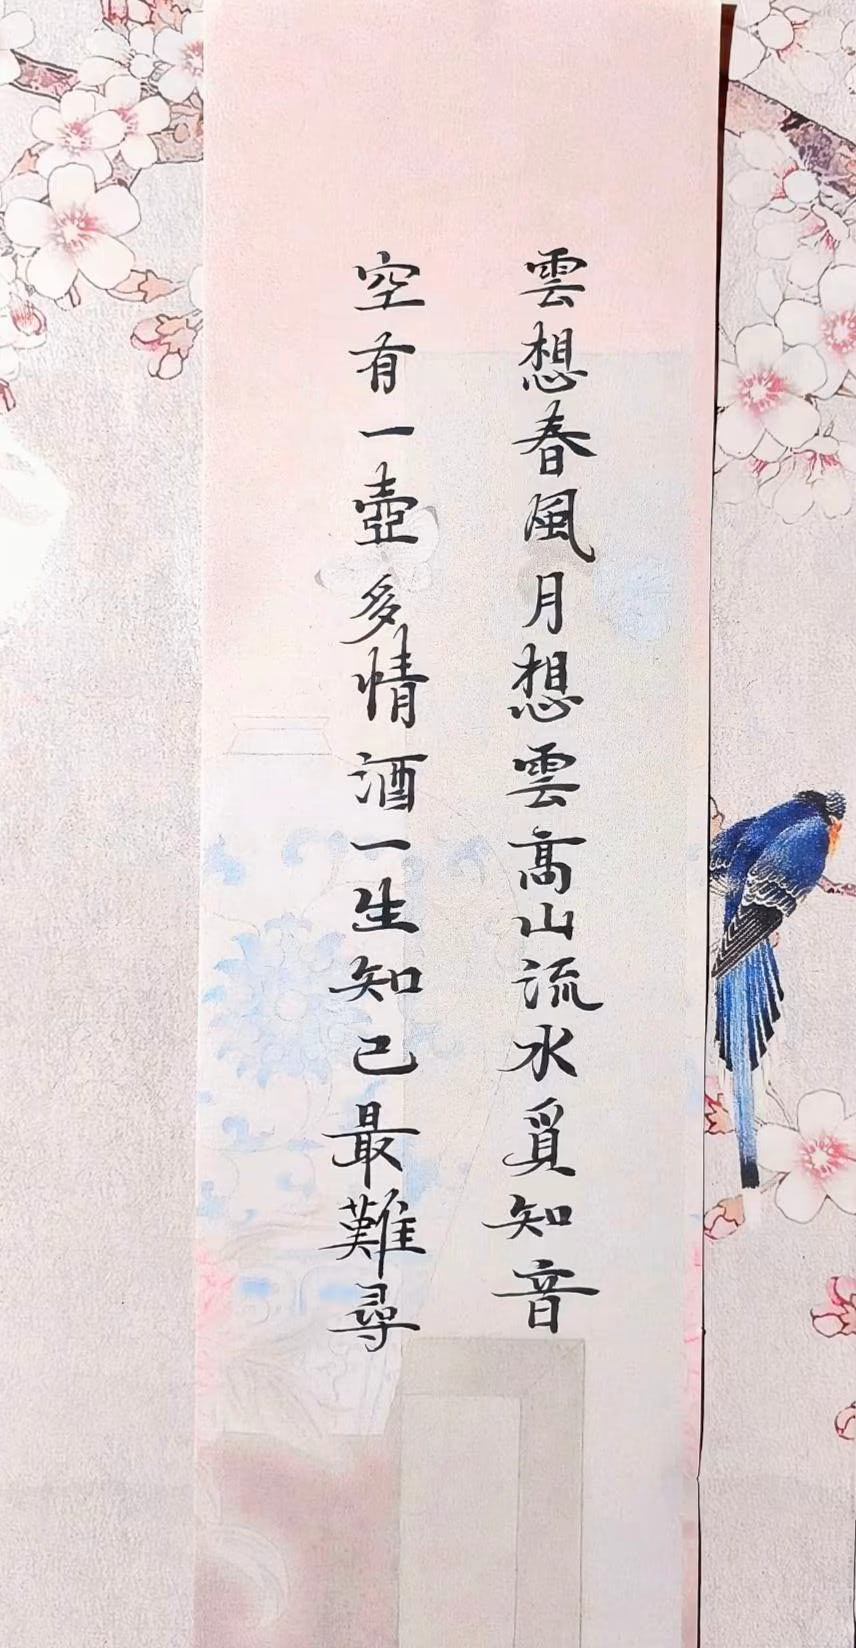 雲想春風月想雲高山流水覓知音
空有一壺多情酒一生知己最難尋